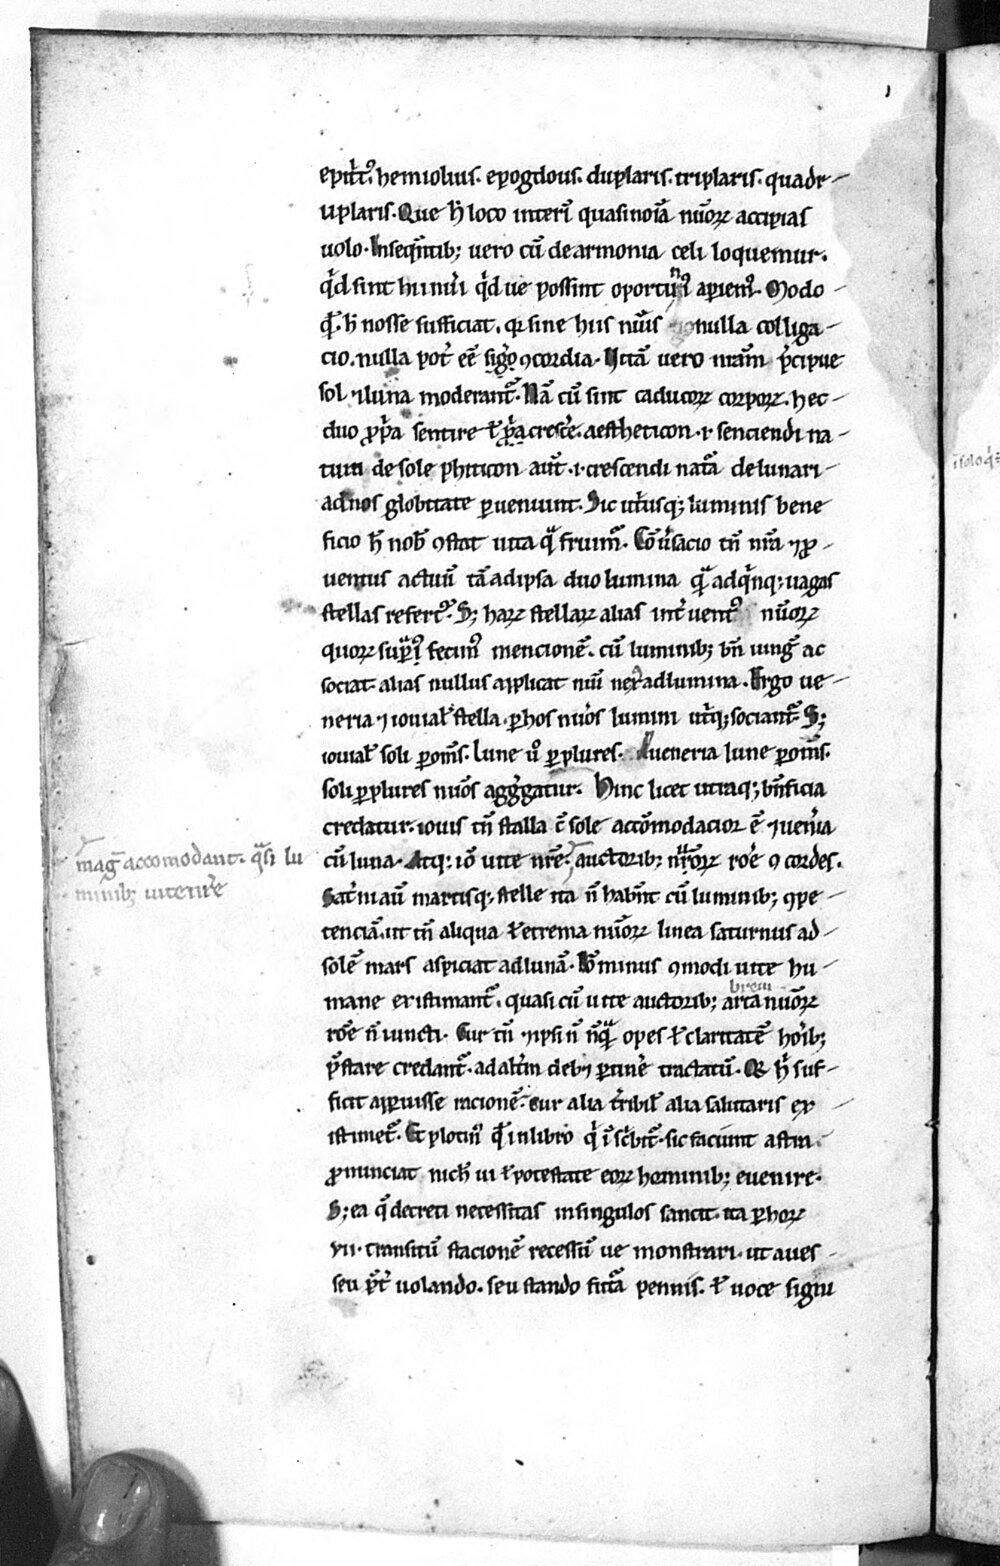 epitͥtꝰ. hemiolius. epogdous. duplaris. triplaris. quadr-
uplaris. Que h̓ loco interī quasi noīa nūoꝝ accipias
uolo. Inseqn̄tib; uero cū de armonia celi loquemur.
qͥd sint hi nūi qͥd ue possint oportuniꝰ apiemꝰ. Modo
q̄. h̓ nosse sufficiat. qꝛ sine hiis nūis nulla colliga-
cio. nulla pot̓ eē ꝯcordia. Uitā uero nr̄am p̄cipue
sol ⁊ luna moderant᷑. Nā cū sint caducoꝝ corpoꝝ. hec
duo ꝓpͥa sentire ⁊ ꝓpͥa cresce̓. aestheticon .i. senciendi na-
tura de sole phiticon aut̄ .i. crescendi natͣa de lunari
ad nos globitate ꝑueniunt. Sic utͥusq; luminis bene
ficio h̓ nob̓ ꝯstat uita qͣ fruim᷑. Cōu̓sacio tn̄ nr̄a ⁊ ꝓ-
uentus actuū tā ad ipsa duo lumina qͣ ad qͥnq; uagas
stellas refert᷑. S; haꝝ stellaꝝ alias int̓uentꝰ nūoꝝ
quoꝝ supͣiꝰ fecimꝰ mencionē. cū luminib; bn̄ iungͥt ac
sociat. alias nullus applicat nūi nex̓ ad lumina. Ergo ue-
neria ⁊ iouial̓ stella. ꝑ hos nūos lumini utͥq; sociant᷑. S;
iouial̓ soli ꝑ om̄s. lune u̓o ꝑ plures. ueneria lune ꝑ om̄s.
soli ꝑ plures nūos aggͤgatur. Hinc licet utraq; bn̄ficia
credatur. iouis tn̄ stalla c̄ sole accōmodacior ē ⁊ ueniͣa
cū luna. Atq; iō uite nr̄e auctorib; nr̄oꝝ roē ꝯcordes.
Sat̓ni aū martisq; stelle ita n̄ habn̄t cū luminib; ꝯpe-
tenciā. ut tn̄ aliqua ⁊ extrema nūoꝝ linea saturnus ad
solē mars aspiciat ad lunā. Iō minus ꝯmodi uite hu-
breui
mane existimant᷑. quasi cū uite auctorib; arta nūoꝝ
roē n̄ iuncti. Cur tn̄ ⁊ ipsi n̄ nūqͣ opes ⁊ claritatē hoīb;
p̄stare credant᷑. ad alt̓m deb; ꝑtine̓ tractatū. Qꝛ h̓ suf-
ficit aperuisse racionē. cur alia t̓ribil̓ alia salutaris ex
istimet᷑. Et plotinꝰ qͥ in libro qͥ īscͥbit᷑. si faciunt astra.
ꝓnunciat nich̓ ui ⁊ potestate eoꝝ hominib; euenire.
S; ea q̄ decreti necessitas in singulos sancit. ita ꝑ hoꝝ
vii. transitū stacionē recessū ue monstrari. ut aues
seu p̄t̓ uolando. seu stando futͣa pennis. ⁊ uoce signi
mag̓ accomodant. qͣsi lu
minib; uite nr̄e